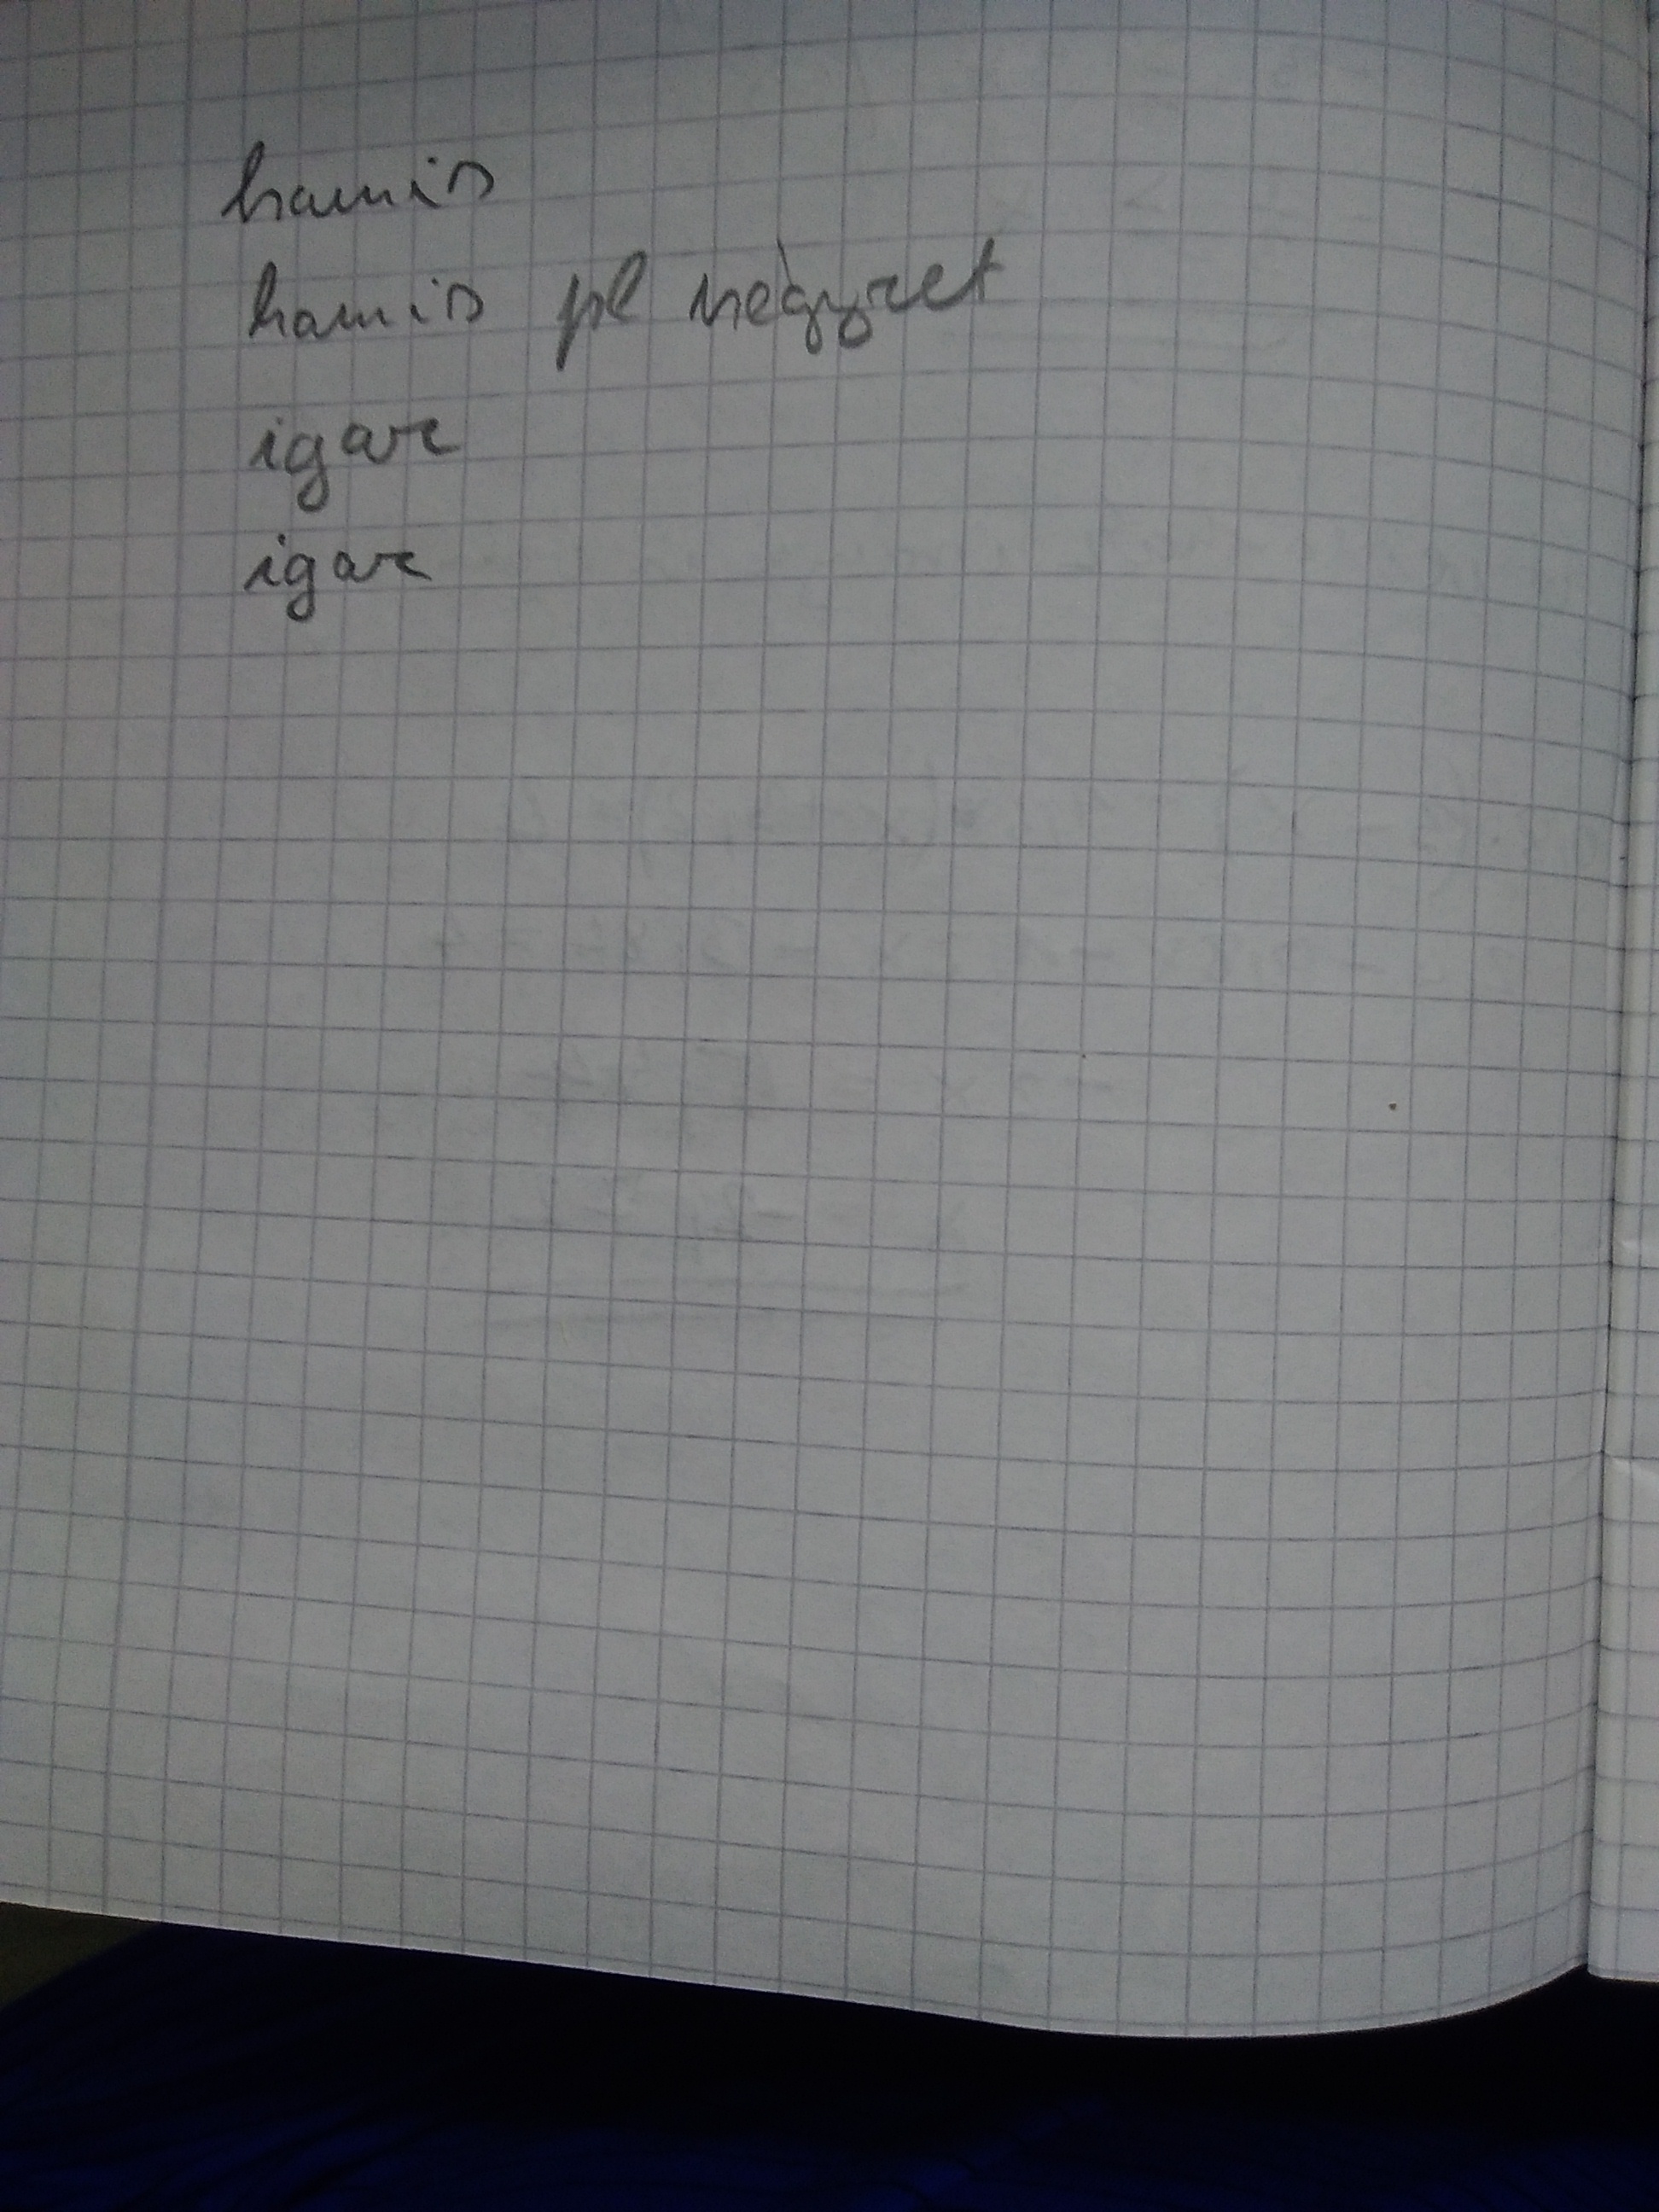 hamis
hamis pl négyzet
igaz
igaz